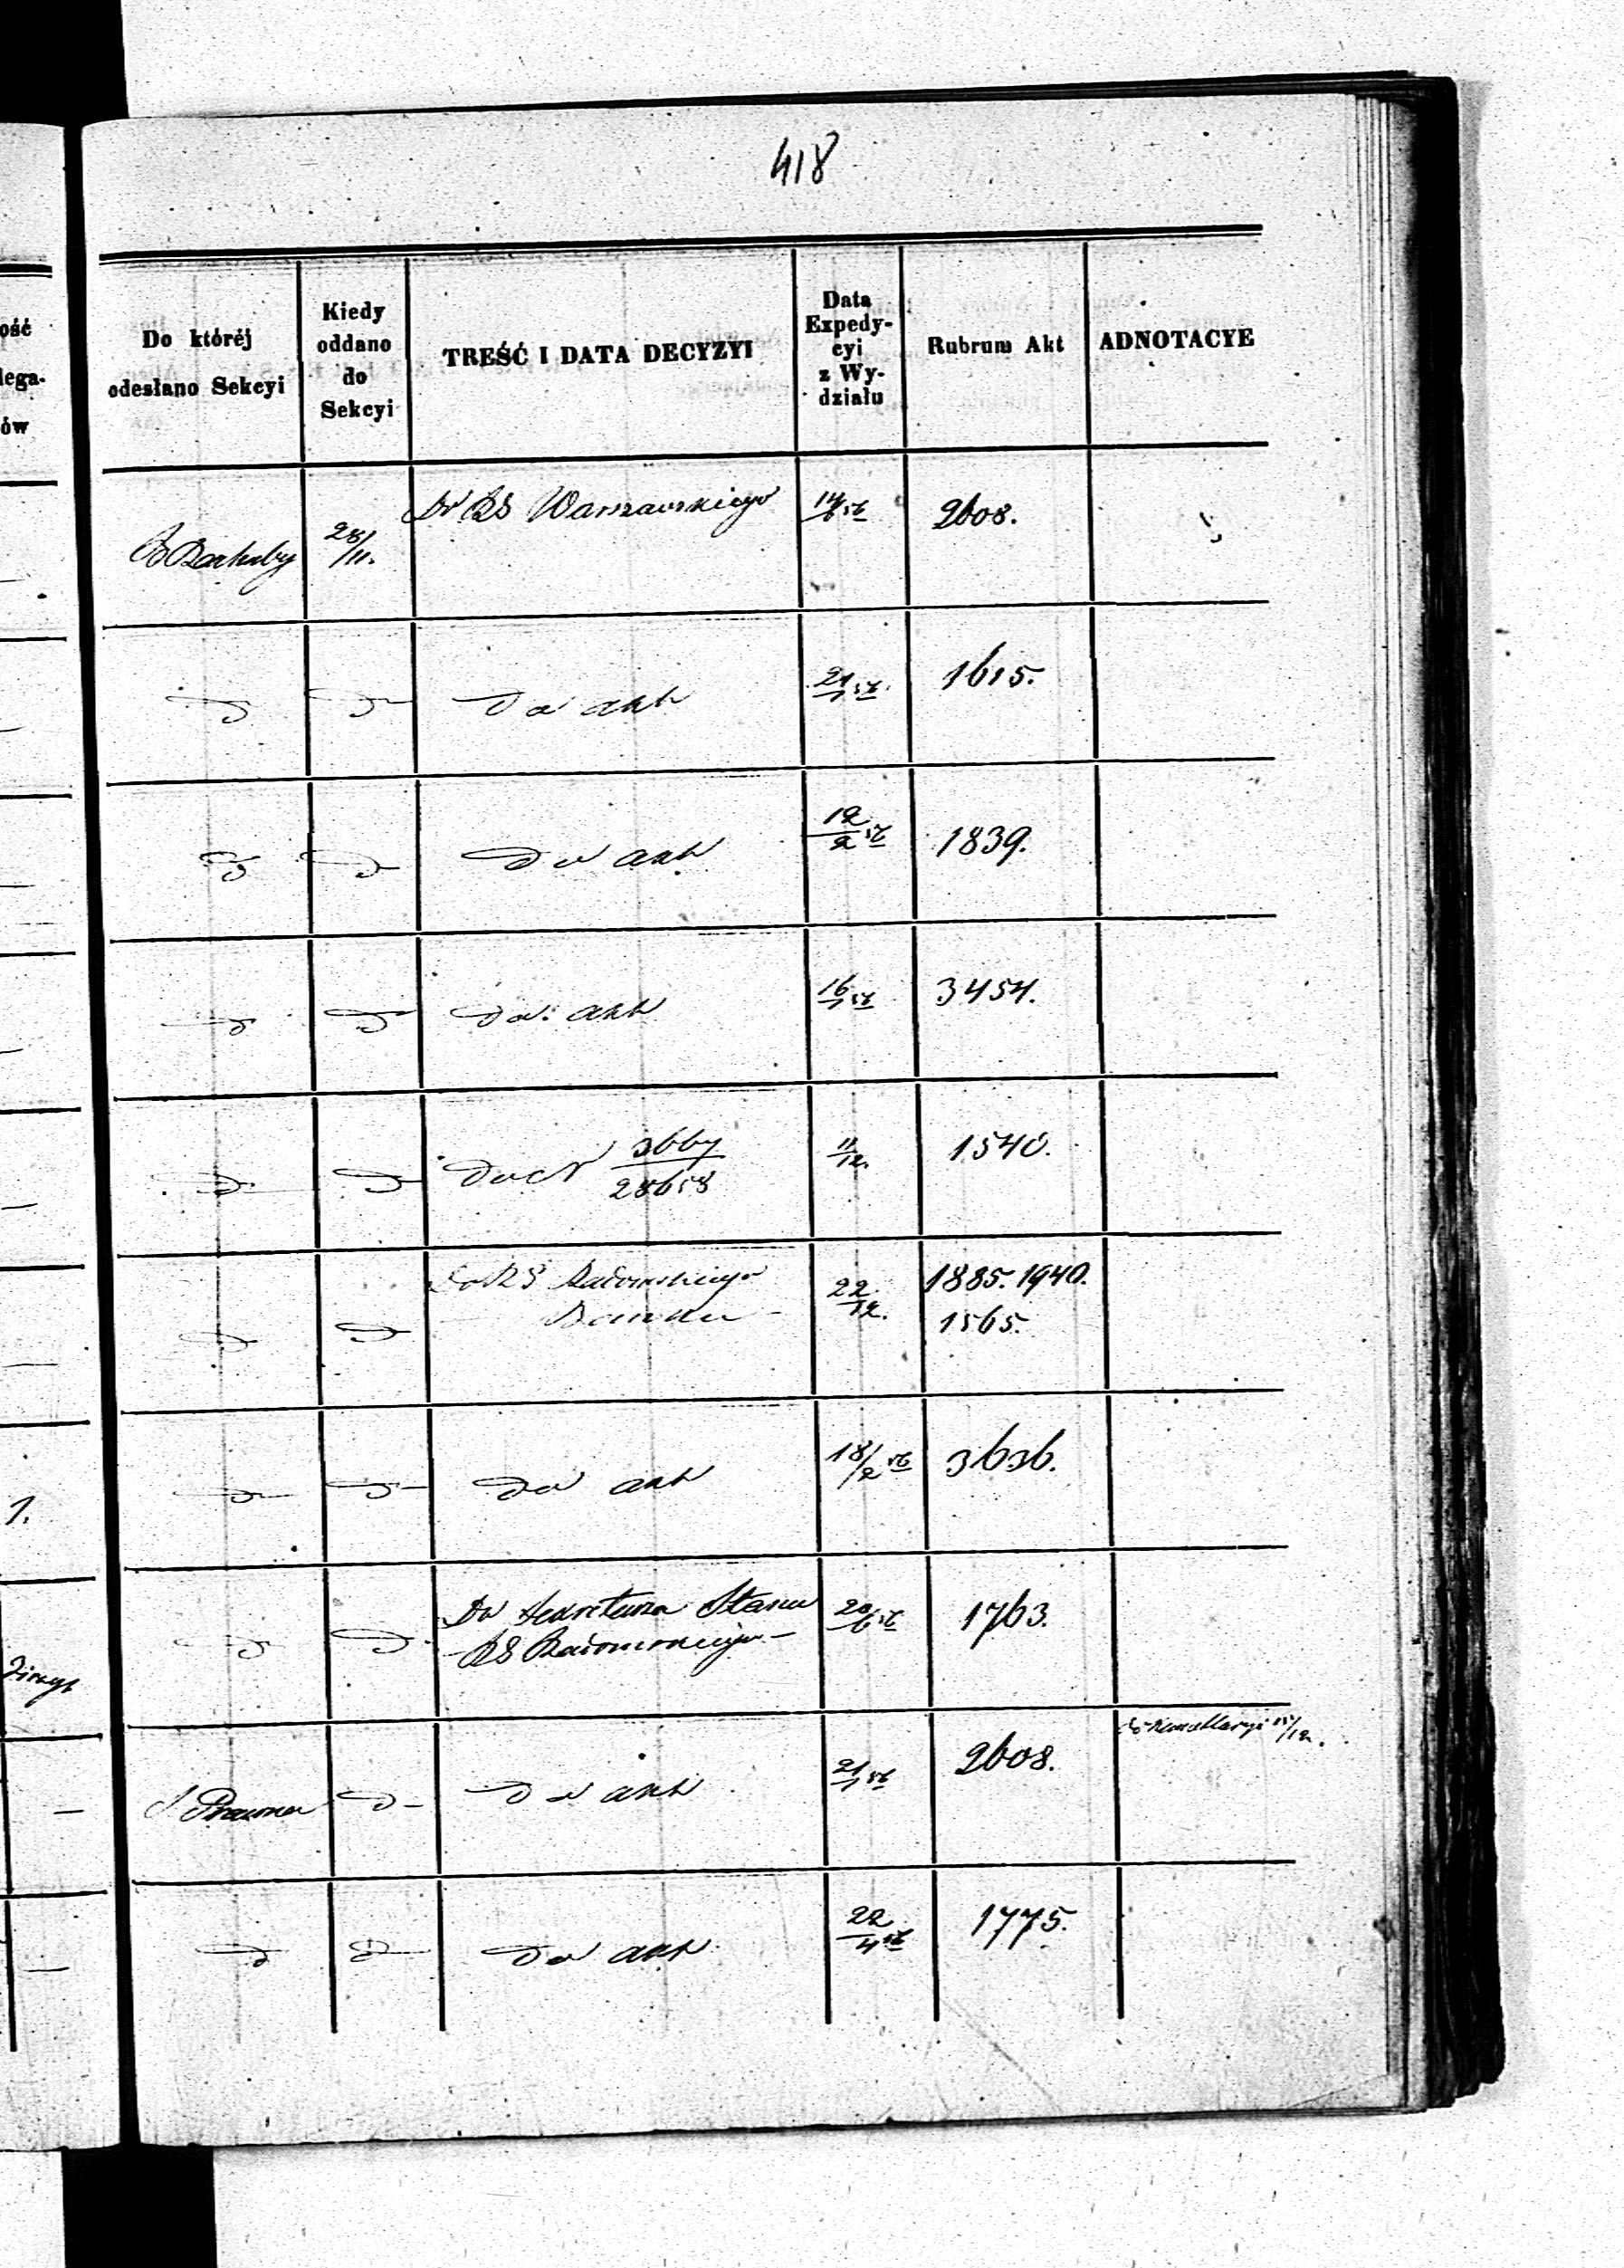 418
ość
lega-
ów
Do któréj
odesłano Sekcyi
Kiedy
oddano
do
Sekcyi
TREŚĆ I DATA DECYZYI
Data
Expedy-
cyi
z Wy-
działu
Rubrum Akt
ADNOTACYE
28/11.
Do RS Warszawskiego
2608.
Do akt
21/1 56
1615.
Do akt
12/2 56
1839.
Do akt
16/1 56
3454.
28658
11/12.
1540.
Do RS Radomskiego
Banku
22/12.
1885. 1940.
1565.
Do akt
18/2 56
3636.
1.
Do Sekretarza Stanu
RS Radomskiego
1763.
S Prawna
Do akt
21/1 56
2608.
Do akt
22/4 56
1775.